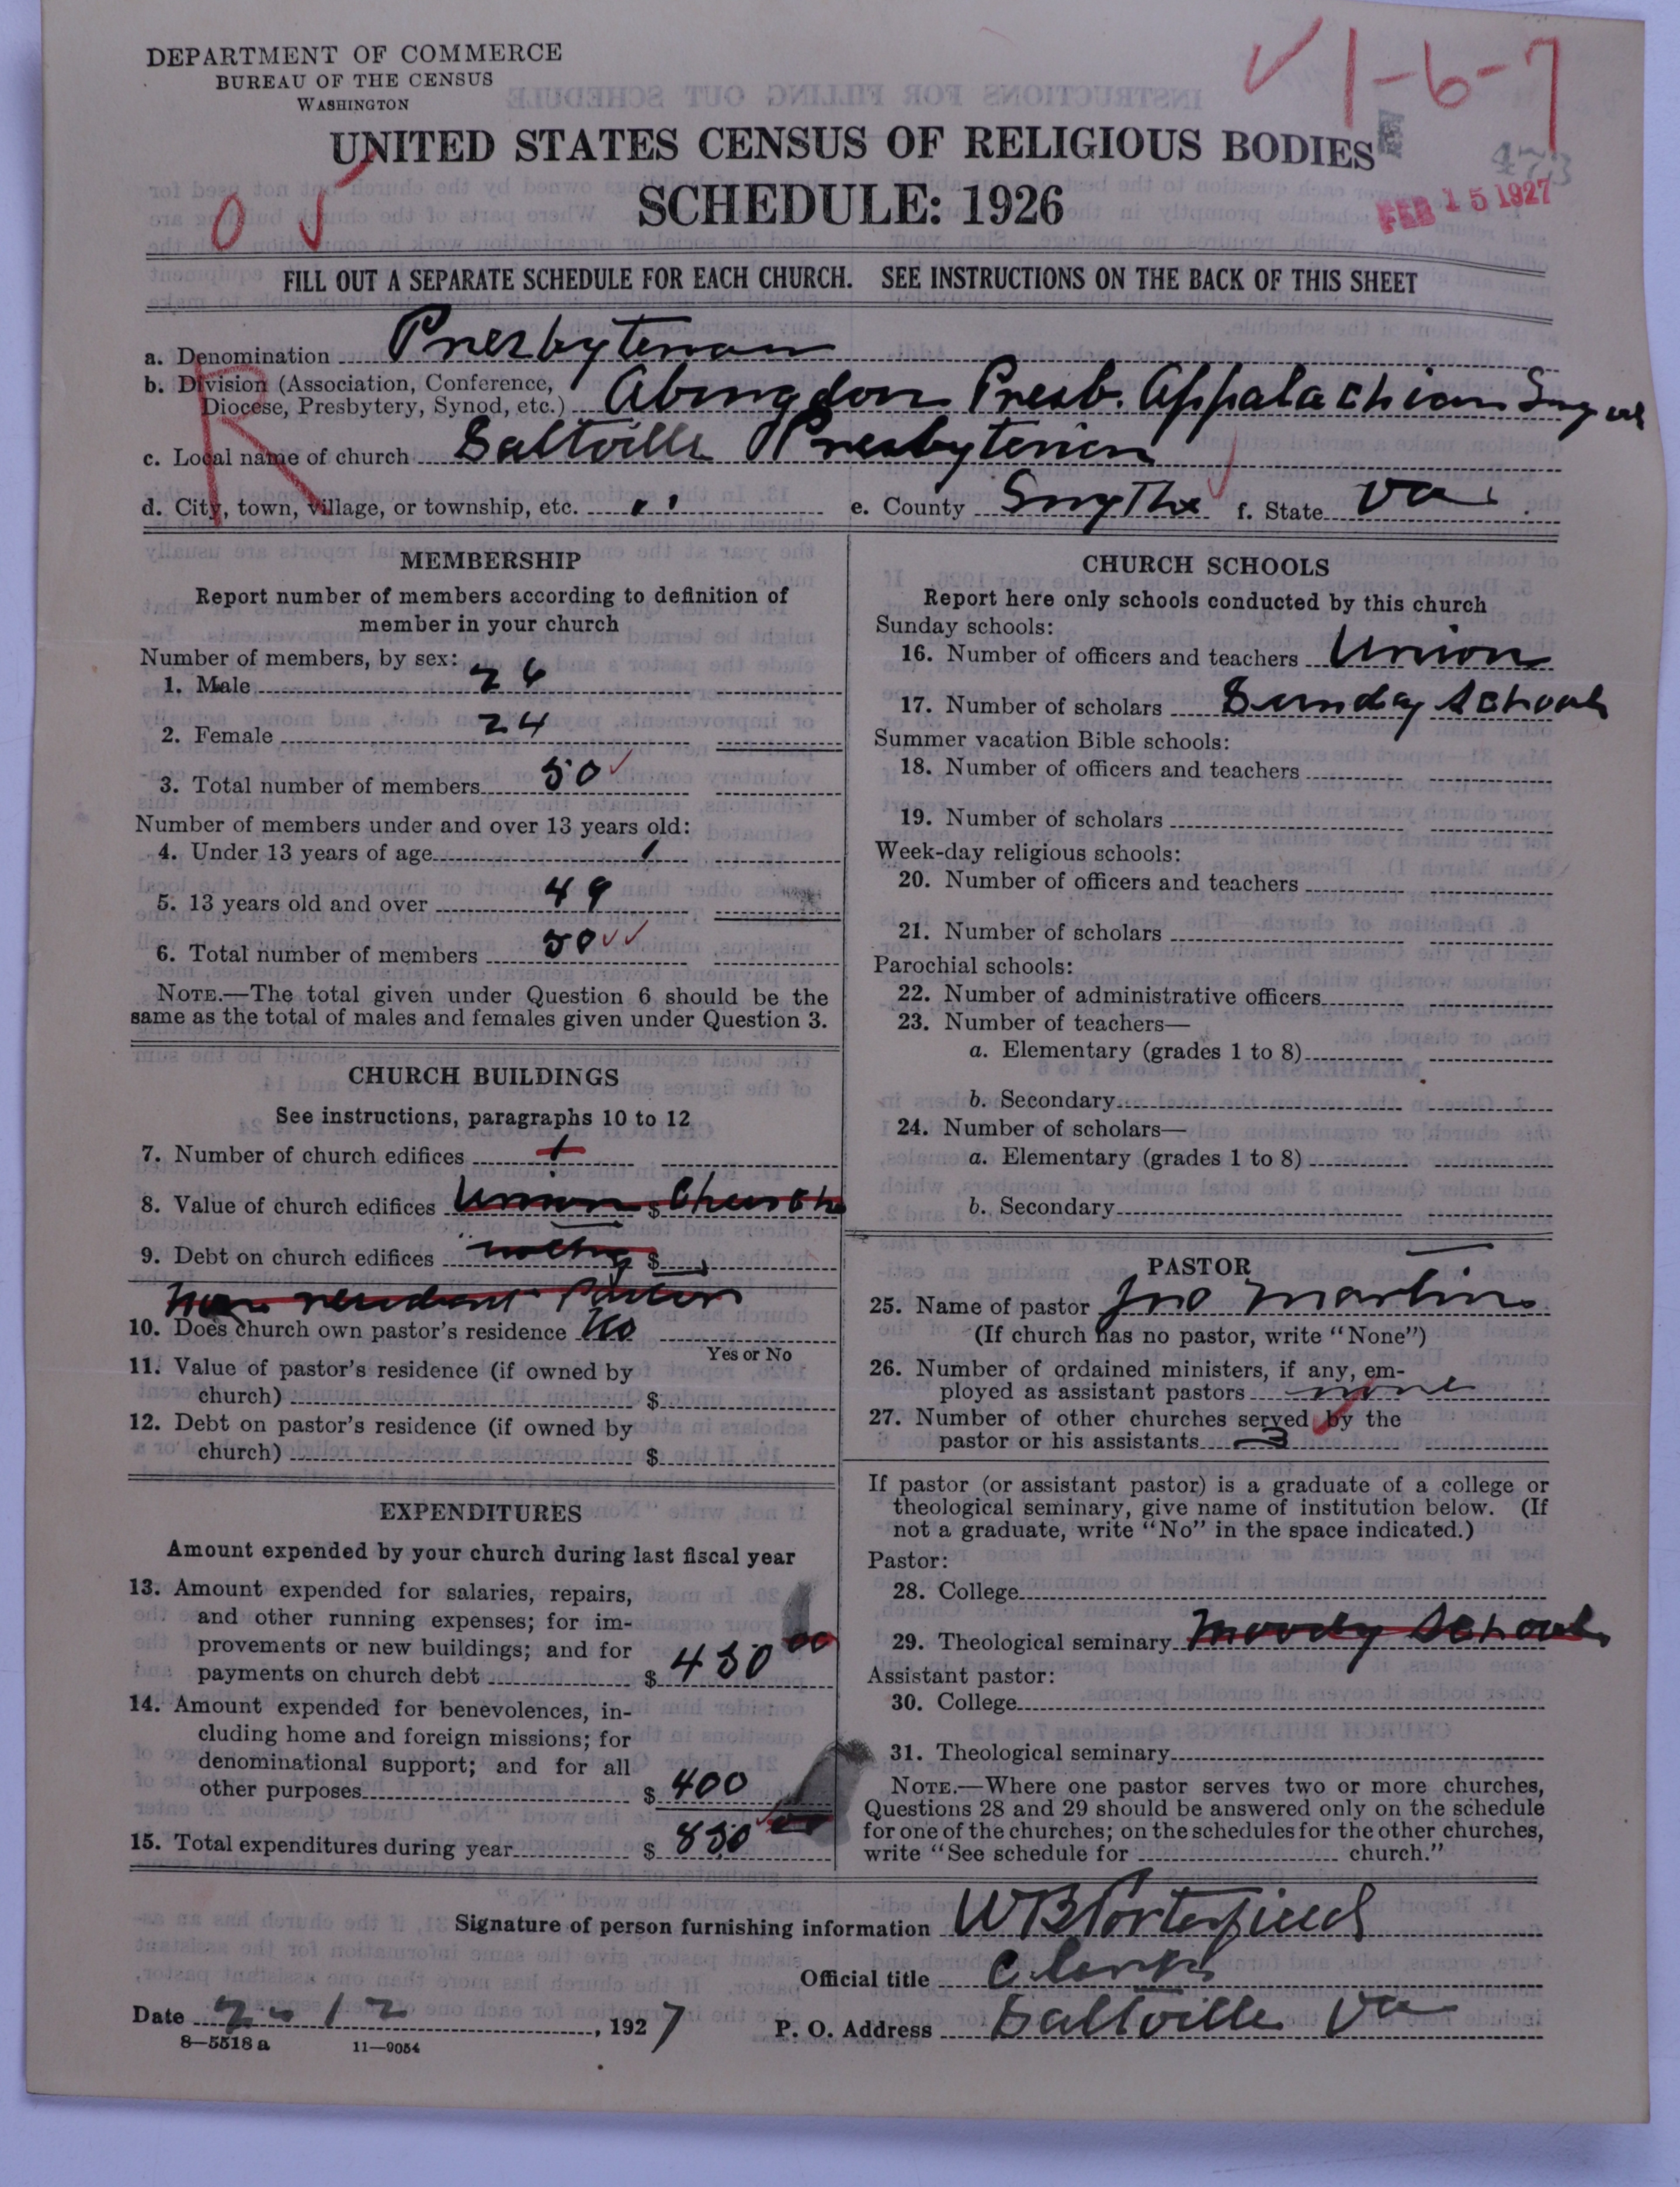 DEPARTMENT OF COMMERCE
BUREAU OF THE CENSUS
WASHINGTON
1-6-7
UNITED STATES CENSUS OF RELIGIOUS BODIES
SCHEDULE: 1926
473
FEB 15 1927
FILL OUT A SEPARATE SCHEDULE FOR EACH CHURCH. SEE INSTRUCTIONS ON THE BACK OF THIS SHEET
R
a. Denomination Presbyterian
b. Division (Association, Conference,
Diocese, Presbytery, Synod, etc.) Abingdon Presb. Appalachian
c. Local name of church Saltville Presbyterian
d. City, town, village, or township, etc. " e. County Smythe f. State Va.
MEMBERSHIP
Report number of members according to definition of
member in your church
Number of members, by sex:
1. Male 26
2. Female 24
3. Total number of members 50
Number of members under and over 13 years old:
4. Under 13 years of age 1
5. 13 years old and over 49
6. Total number of members 50
NOTE.—The total given under Question 6 should be the
same as the total of males and females given under Question 3.
CHURCH BUILDINGS
See instructions, paragraphs 10 to 12
7. Number of church edifices 1
8. Value of church edifices Union $ Church
9. Debt on church edifices $
10. Does church own pastor's residence No
Yes or No
11. Value of pastor's residence (if owned by
church) $
12. Debt on pastor's residence (if owned by
church) $
EXPENDITURES
Amount expended by your church during last fiscal year
13. Amount expended for salaries, repairs,
and other running expenses; for im-
provements or new buildings; and for
payments on church debt $ 450 00
14. Amount expended for benevolences, in-
cluding home and foreign missions; for
denominational support; and for all
other purposes $ 400
15. Total expenditures during year $ 850
CHURCH SCHOOLS
Report here only schools conducted by this church
Sunday schools:
16. Number of officers and teachers Union
17. Number of scholars Sunday School
Summer vacation Bible schools:
18. Number of officers and teachers
19. Number of scholars
Week-day religious schools:
20. Number of officers and teachers
21. Number of scholars
Parochial schools:
22. Number of administrative officers
23. Number of teachers—
a. Elementary (grades 1 to 8)
b. Secondary
24. Number of scholars—
a. Elementary (grades 1 to 8)
b. Secondary
PASTOR
25. Name of pastor Jno Martin
(If church has no pastor, write "None")
26. Number of ordained ministers, if any, em-
ployed as assistant pastors none
27. Number of other churches served by the
pastor or his assistants 3
If pastor (or assistant pastor) is a graduate of a college or
theological seminary, give name of institution below. (If
not a graduate, write "No" in the space indicated.)
Pastor:
28. College
29. Theological seminary Moody School
Assistant pastor:
30. College
31. Theological seminary
NOTE.—Where one pastor serves two or more churches,
Questions 28 and 29 should be answered only on the schedule
for one of the churches; on the schedules for the other churches,
write "See schedule for church."
Signature of person furnishing information WB Porterfield
Official title Clerk
Date 2-12, 1927 P. O. Address Saltville Va
8—5518 a 11—9054